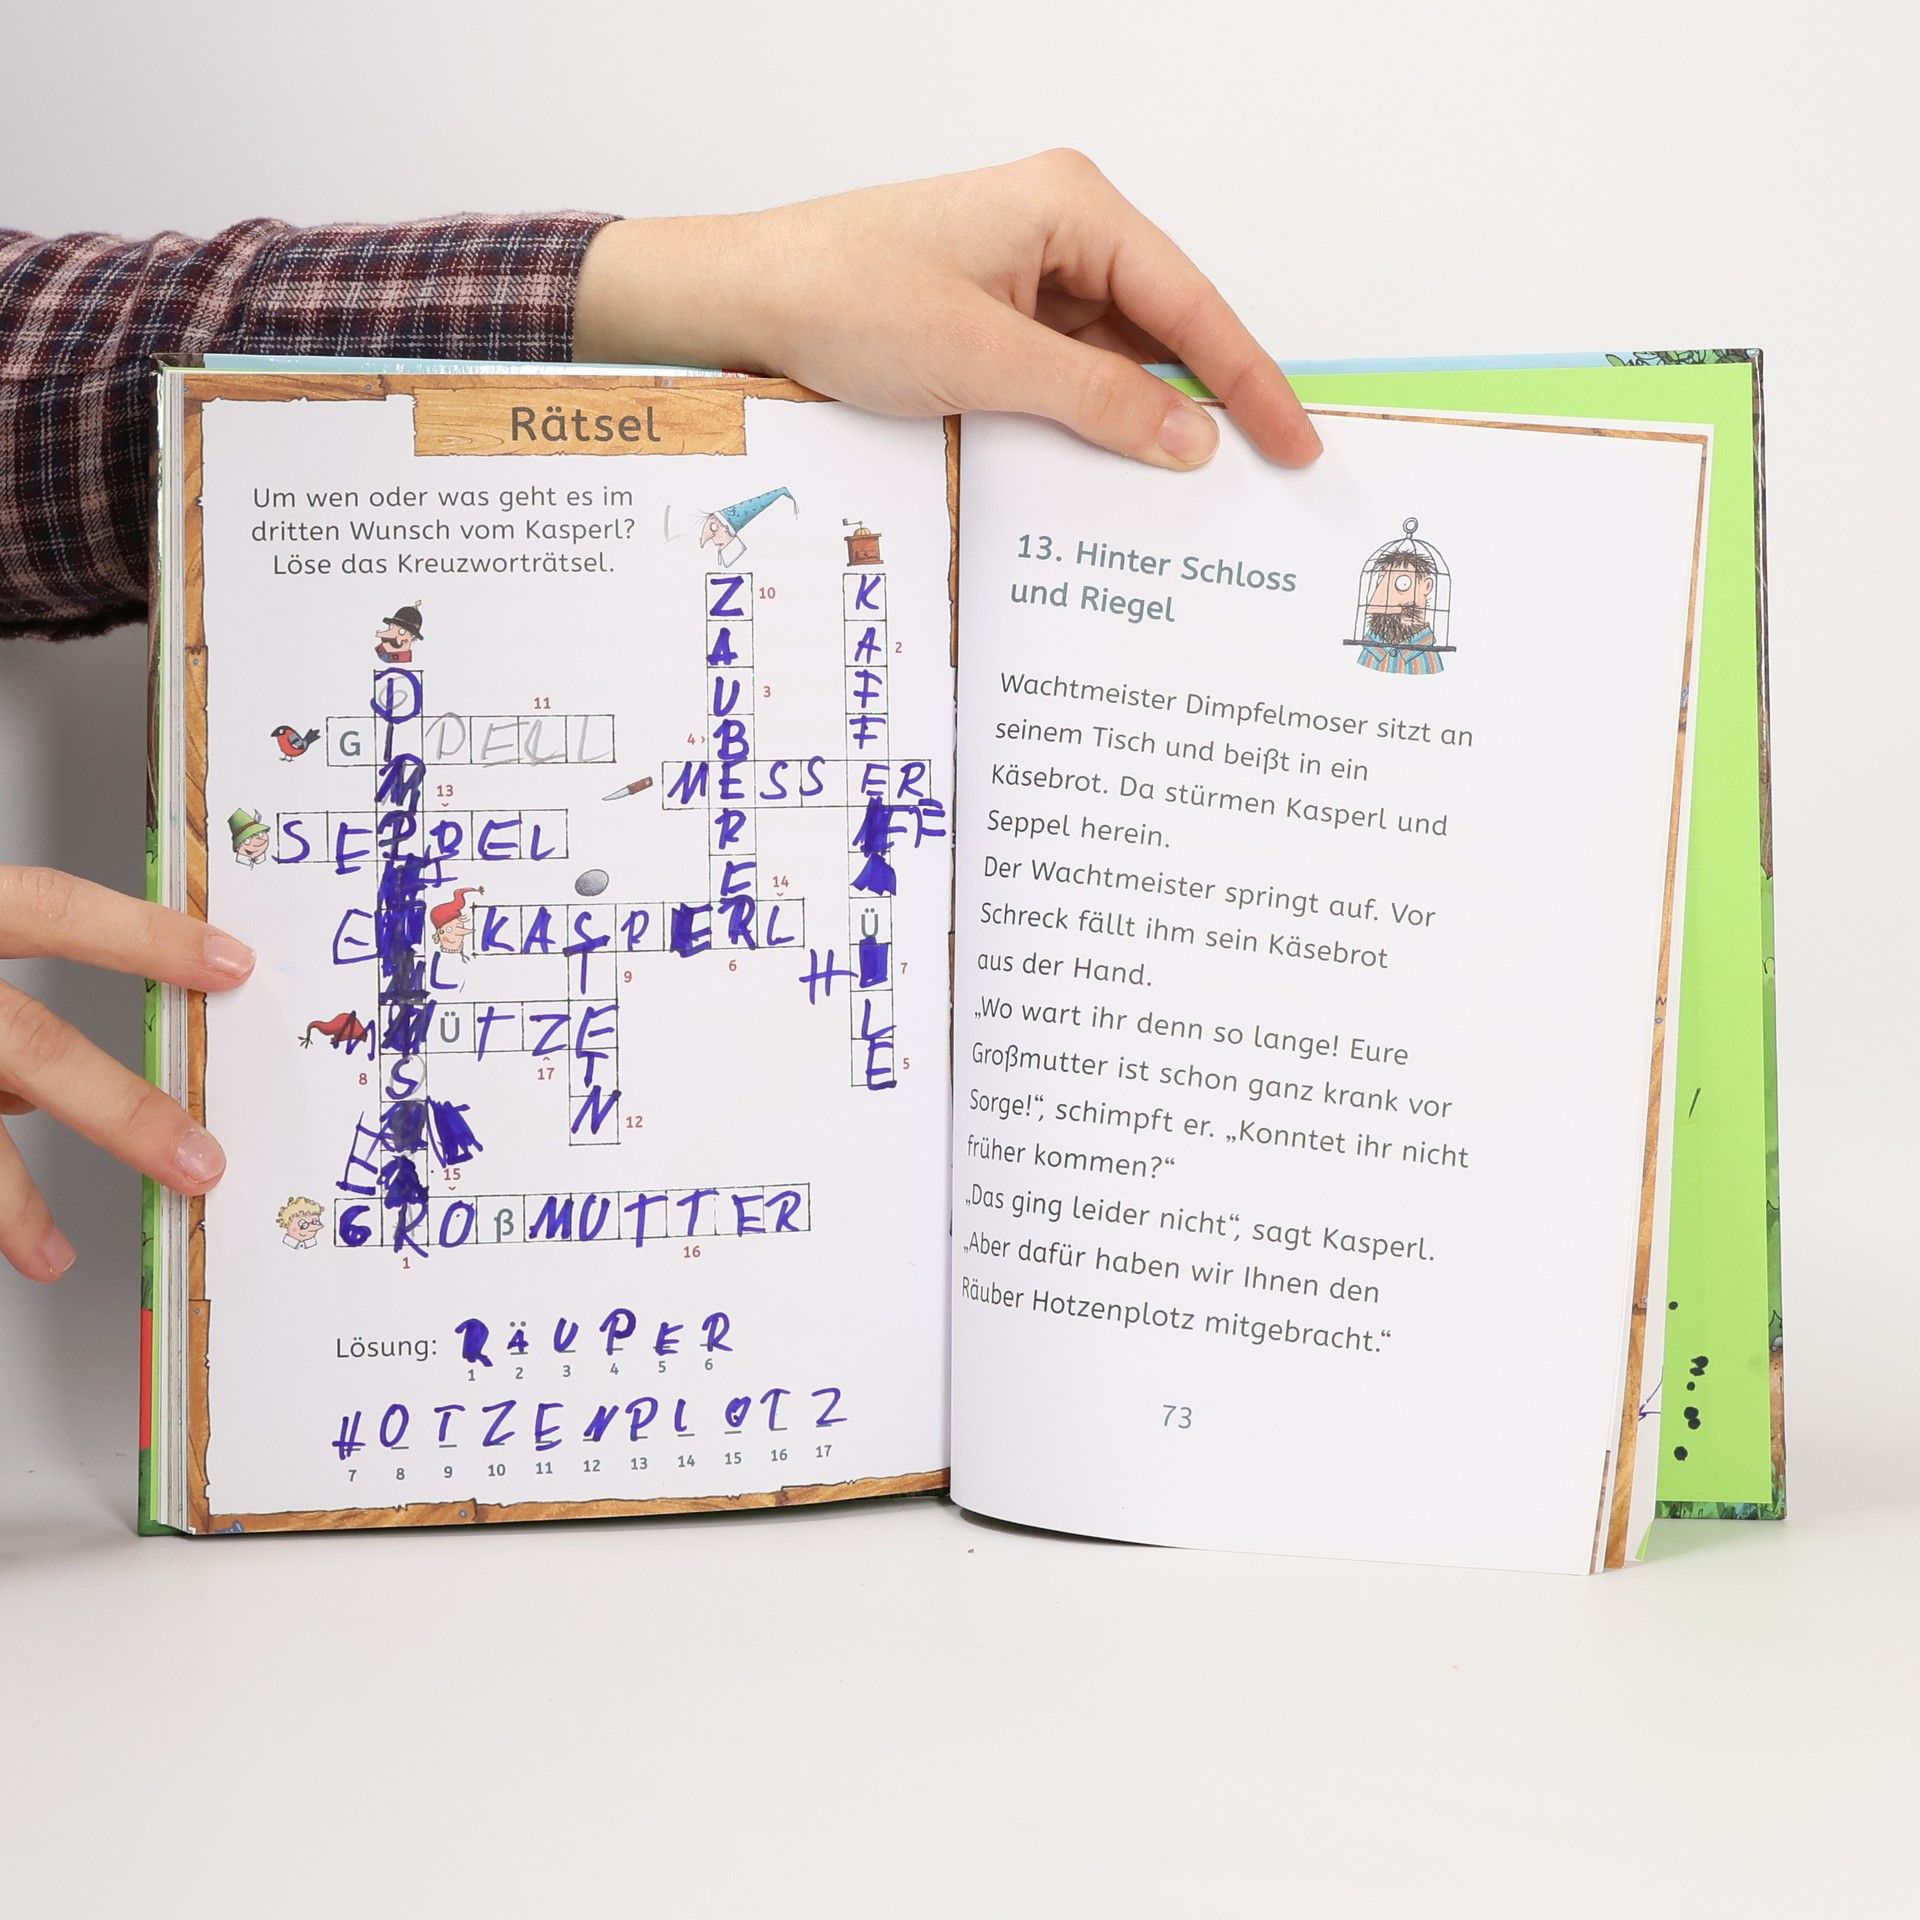 Rätsel
Um wen oder was geht es im
dritten Wunsch vom Kasperl?
Löse das Kreuzworträtsel.
ZAUBERER
KAFFE
Ü
H
LE
10
2
3
4
11
G
DELL
MESSER
13
SEPPEL
14
KASPERL
STETN
9
6
7
MÜTZE
8
17
5
12
15
GROßMUTTER
1
16
Lösung: RÄUPER
1 2 3 4 5 6
HOTZENPLOTZ
7 8 9 10 11 12 13 14 15 16 17
13. Hinter Schloss
und Riegel
Wachtmeister Dimpfelmoser sitzt an
seinem Tisch und beißt in ein
Käsebrot. Da stürmen Kasperl und
Seppel herein.
Der Wachtmeister springt auf. Vor
Schreck fällt ihm sein Käsebrot
aus der Hand.
„Wo wart ihr denn so lange! Eure
Großmutter ist schon ganz krank vor
Sorge!“, schimpft er. „Konntet ihr nicht
früher kommen?“
„Das ging leider nicht“, sagt Kasperl.
„Aber dafür haben wir Ihnen den
Räuber Hotzenplotz mitgebracht.“
73